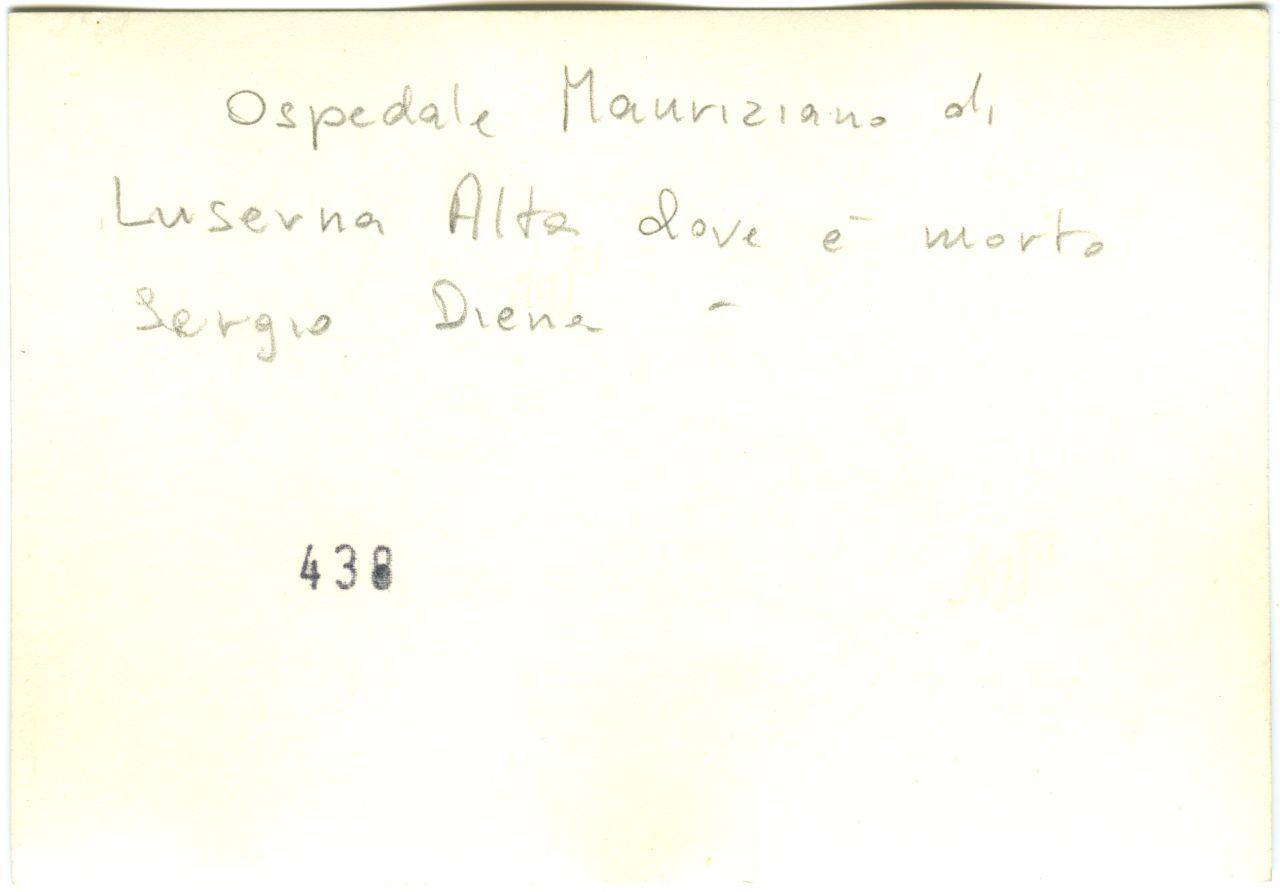 Ospedale Mauriziano di
Luserna Alta dove è morto
Sergio Diena -
438